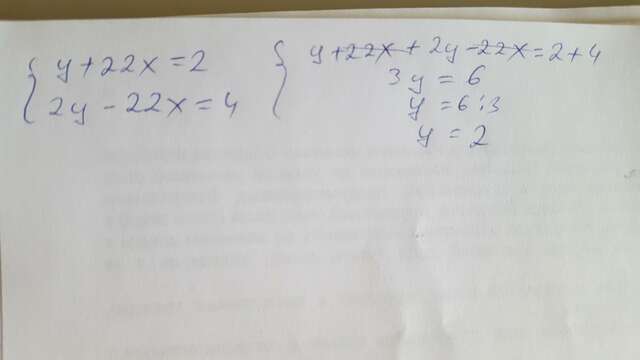 y+22x=2
2y-22x=4
y+22x+2y-22x=2+4
3y=6
y=6:3
y=2